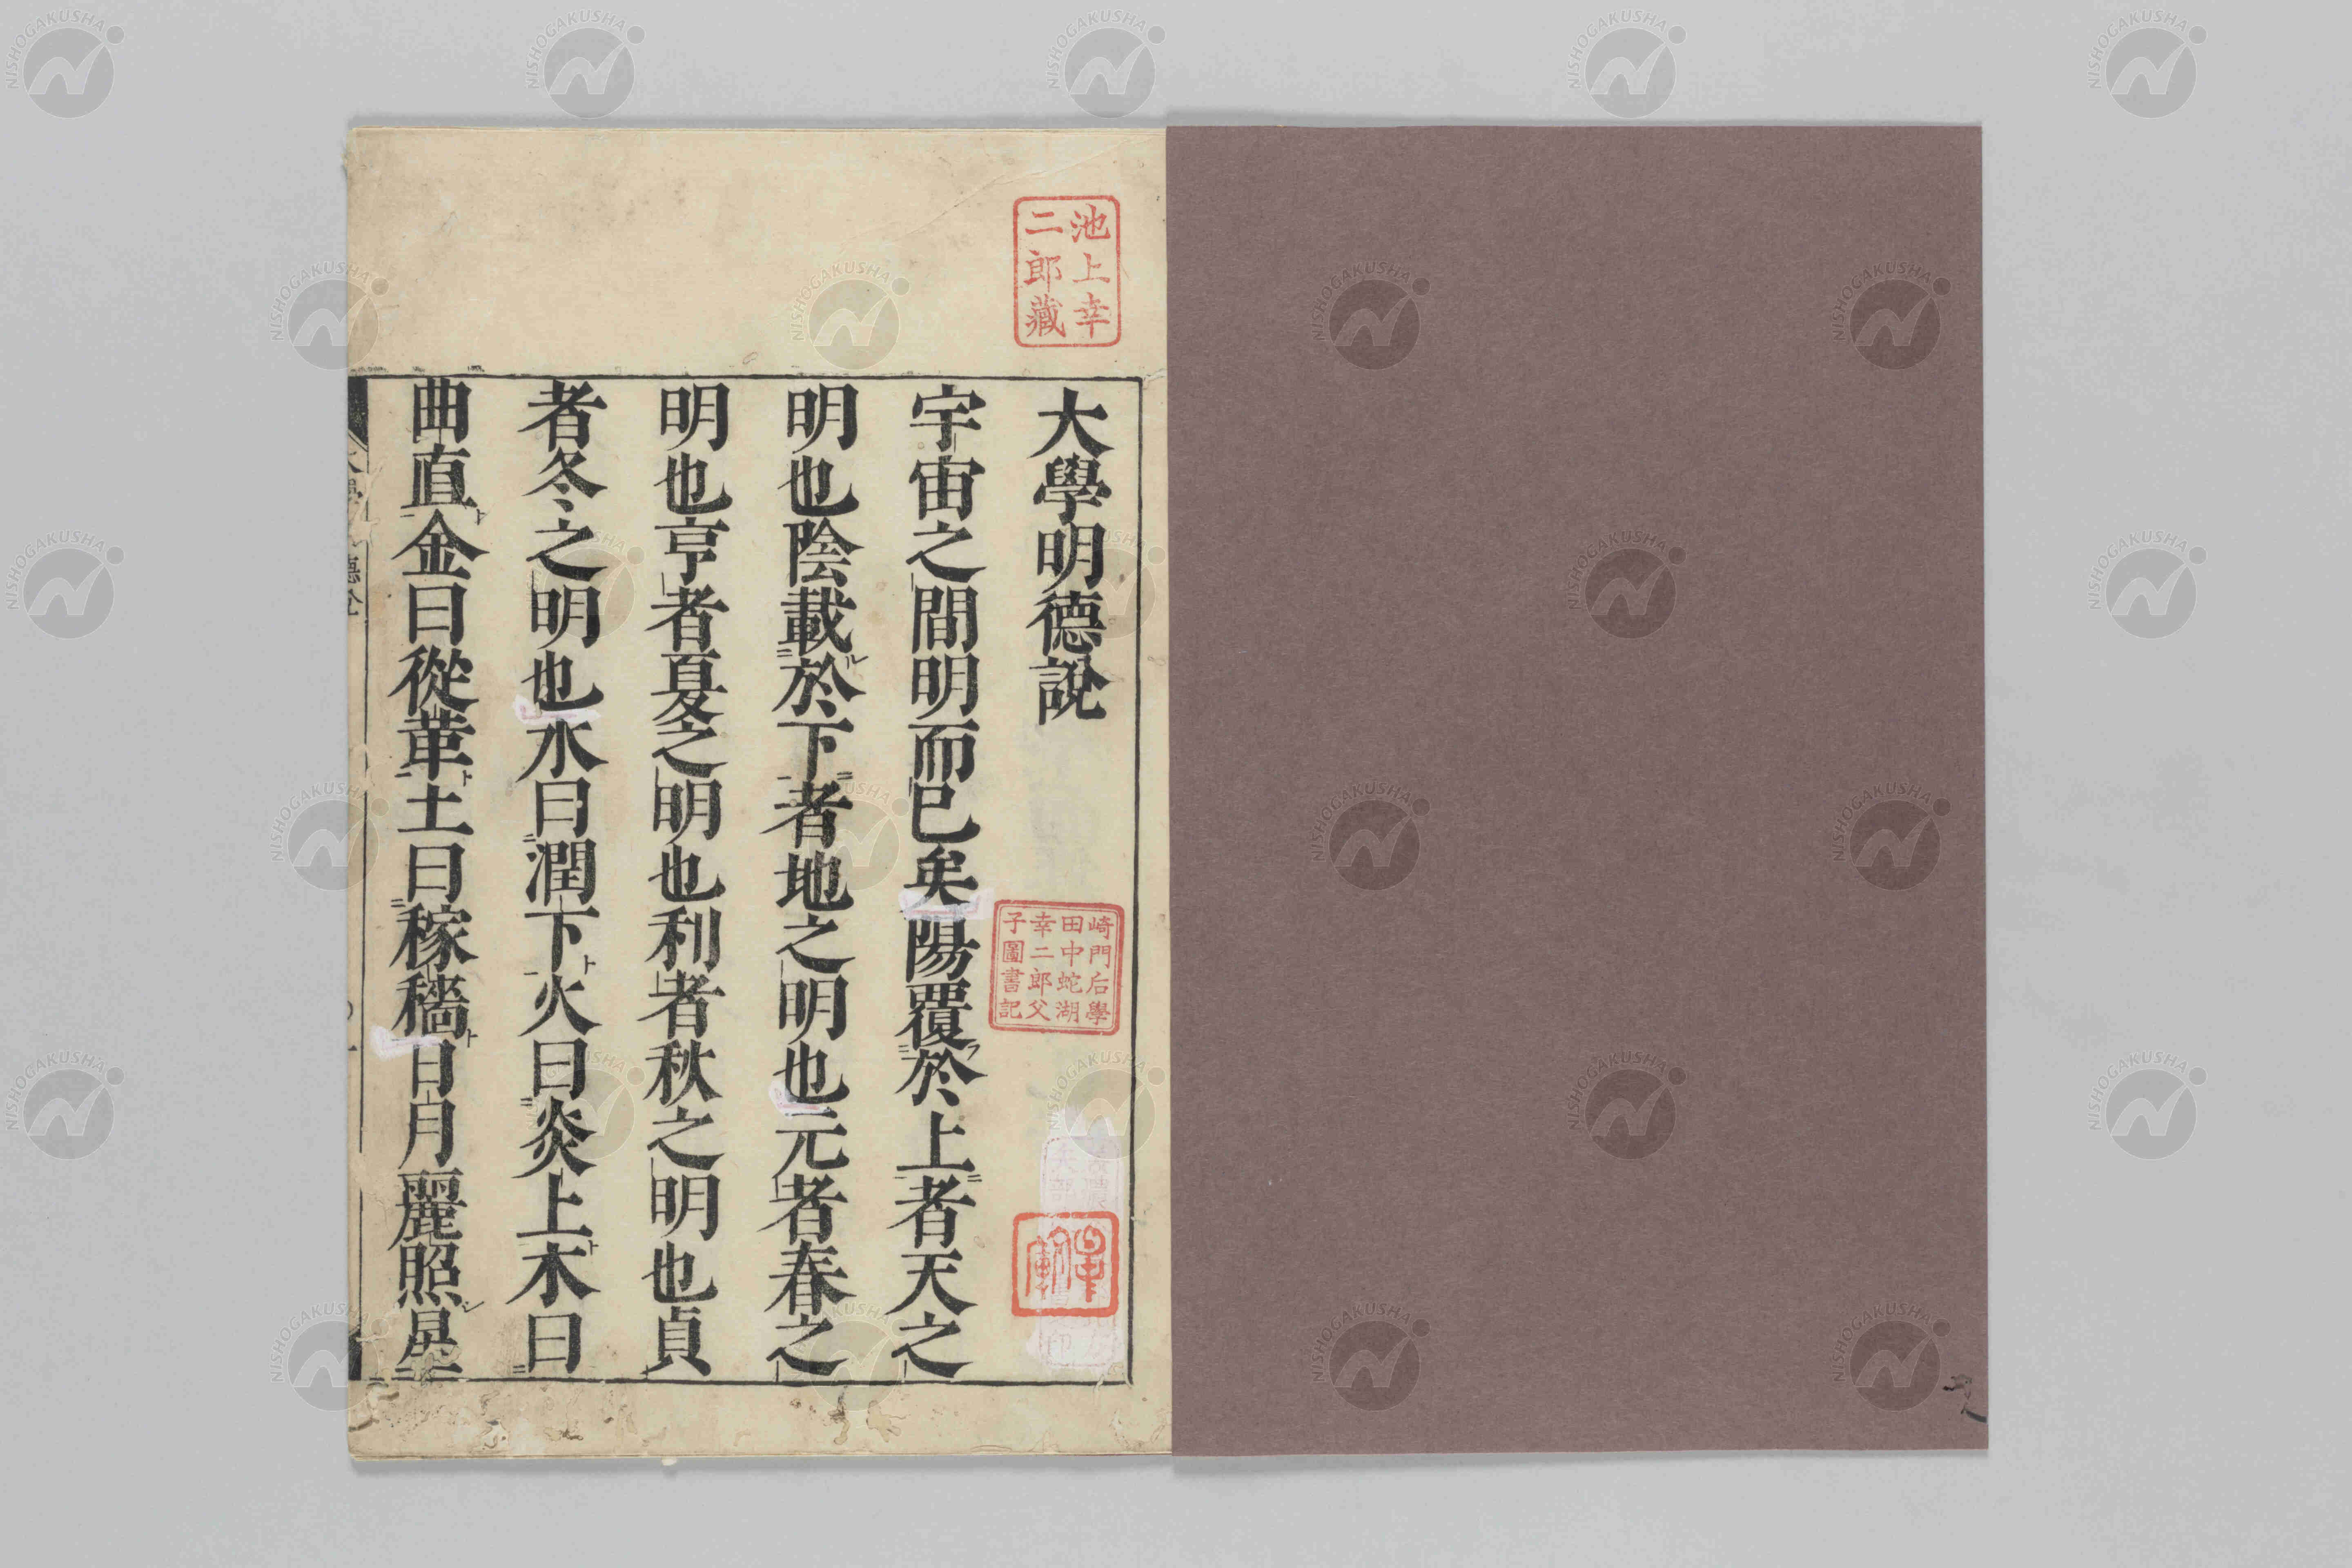 大學明德說
宇宙之間明而已矣陽覆於上者天之
明也陰載於下者地之明也元者春之
明也亨者夏之明也利者秋之明也貞
者冬之明也水曰潤下火曰炎上木曰
曲直金曰從革土曰稼穡日月麗照星
池上幸
二郎藏
崎門后學
田中蛇湖
幸二郎父
子圖書記
NISHOGAKUSHA